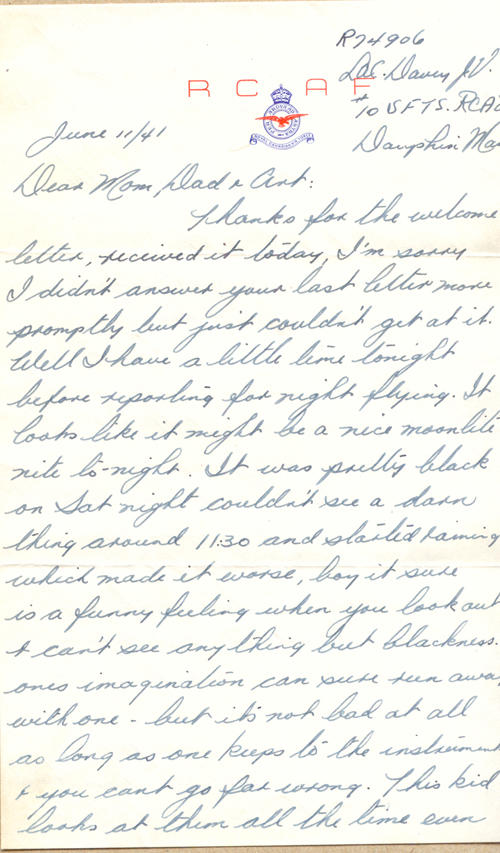 R74906
LAC. Davey J.V.
RCAF
#10 S.F.T.S. RCA
June 11/41
Dauphin Ma
Dear Mom, Dad & Art:
Thanks for the welcome
letter, received it today, I'm sorry
I didn't answer your last letter more
promptly but just couldn't get at it.
Well I have a little time tonight
before reporting for night flying. It
looks like it might be a nice moonlite
nite to-night. It was pretty black
on Sat night couldn't see a darn
thing around 11:30 and started raining
which made it worse, boy it sure
is a funny feeling when you look out
& can't see anything but blackness.
ones imagination can sure run away
with one - but it's not bad at all
as long as one keeps to the instrument
& you cant go far wrong. This kid
looks at them all the time even